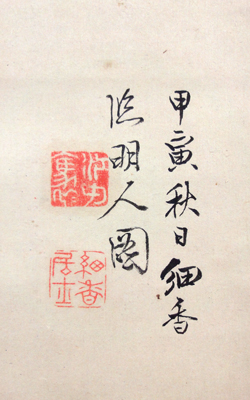 甲寅秋日細香
臨明人圖
細香居士